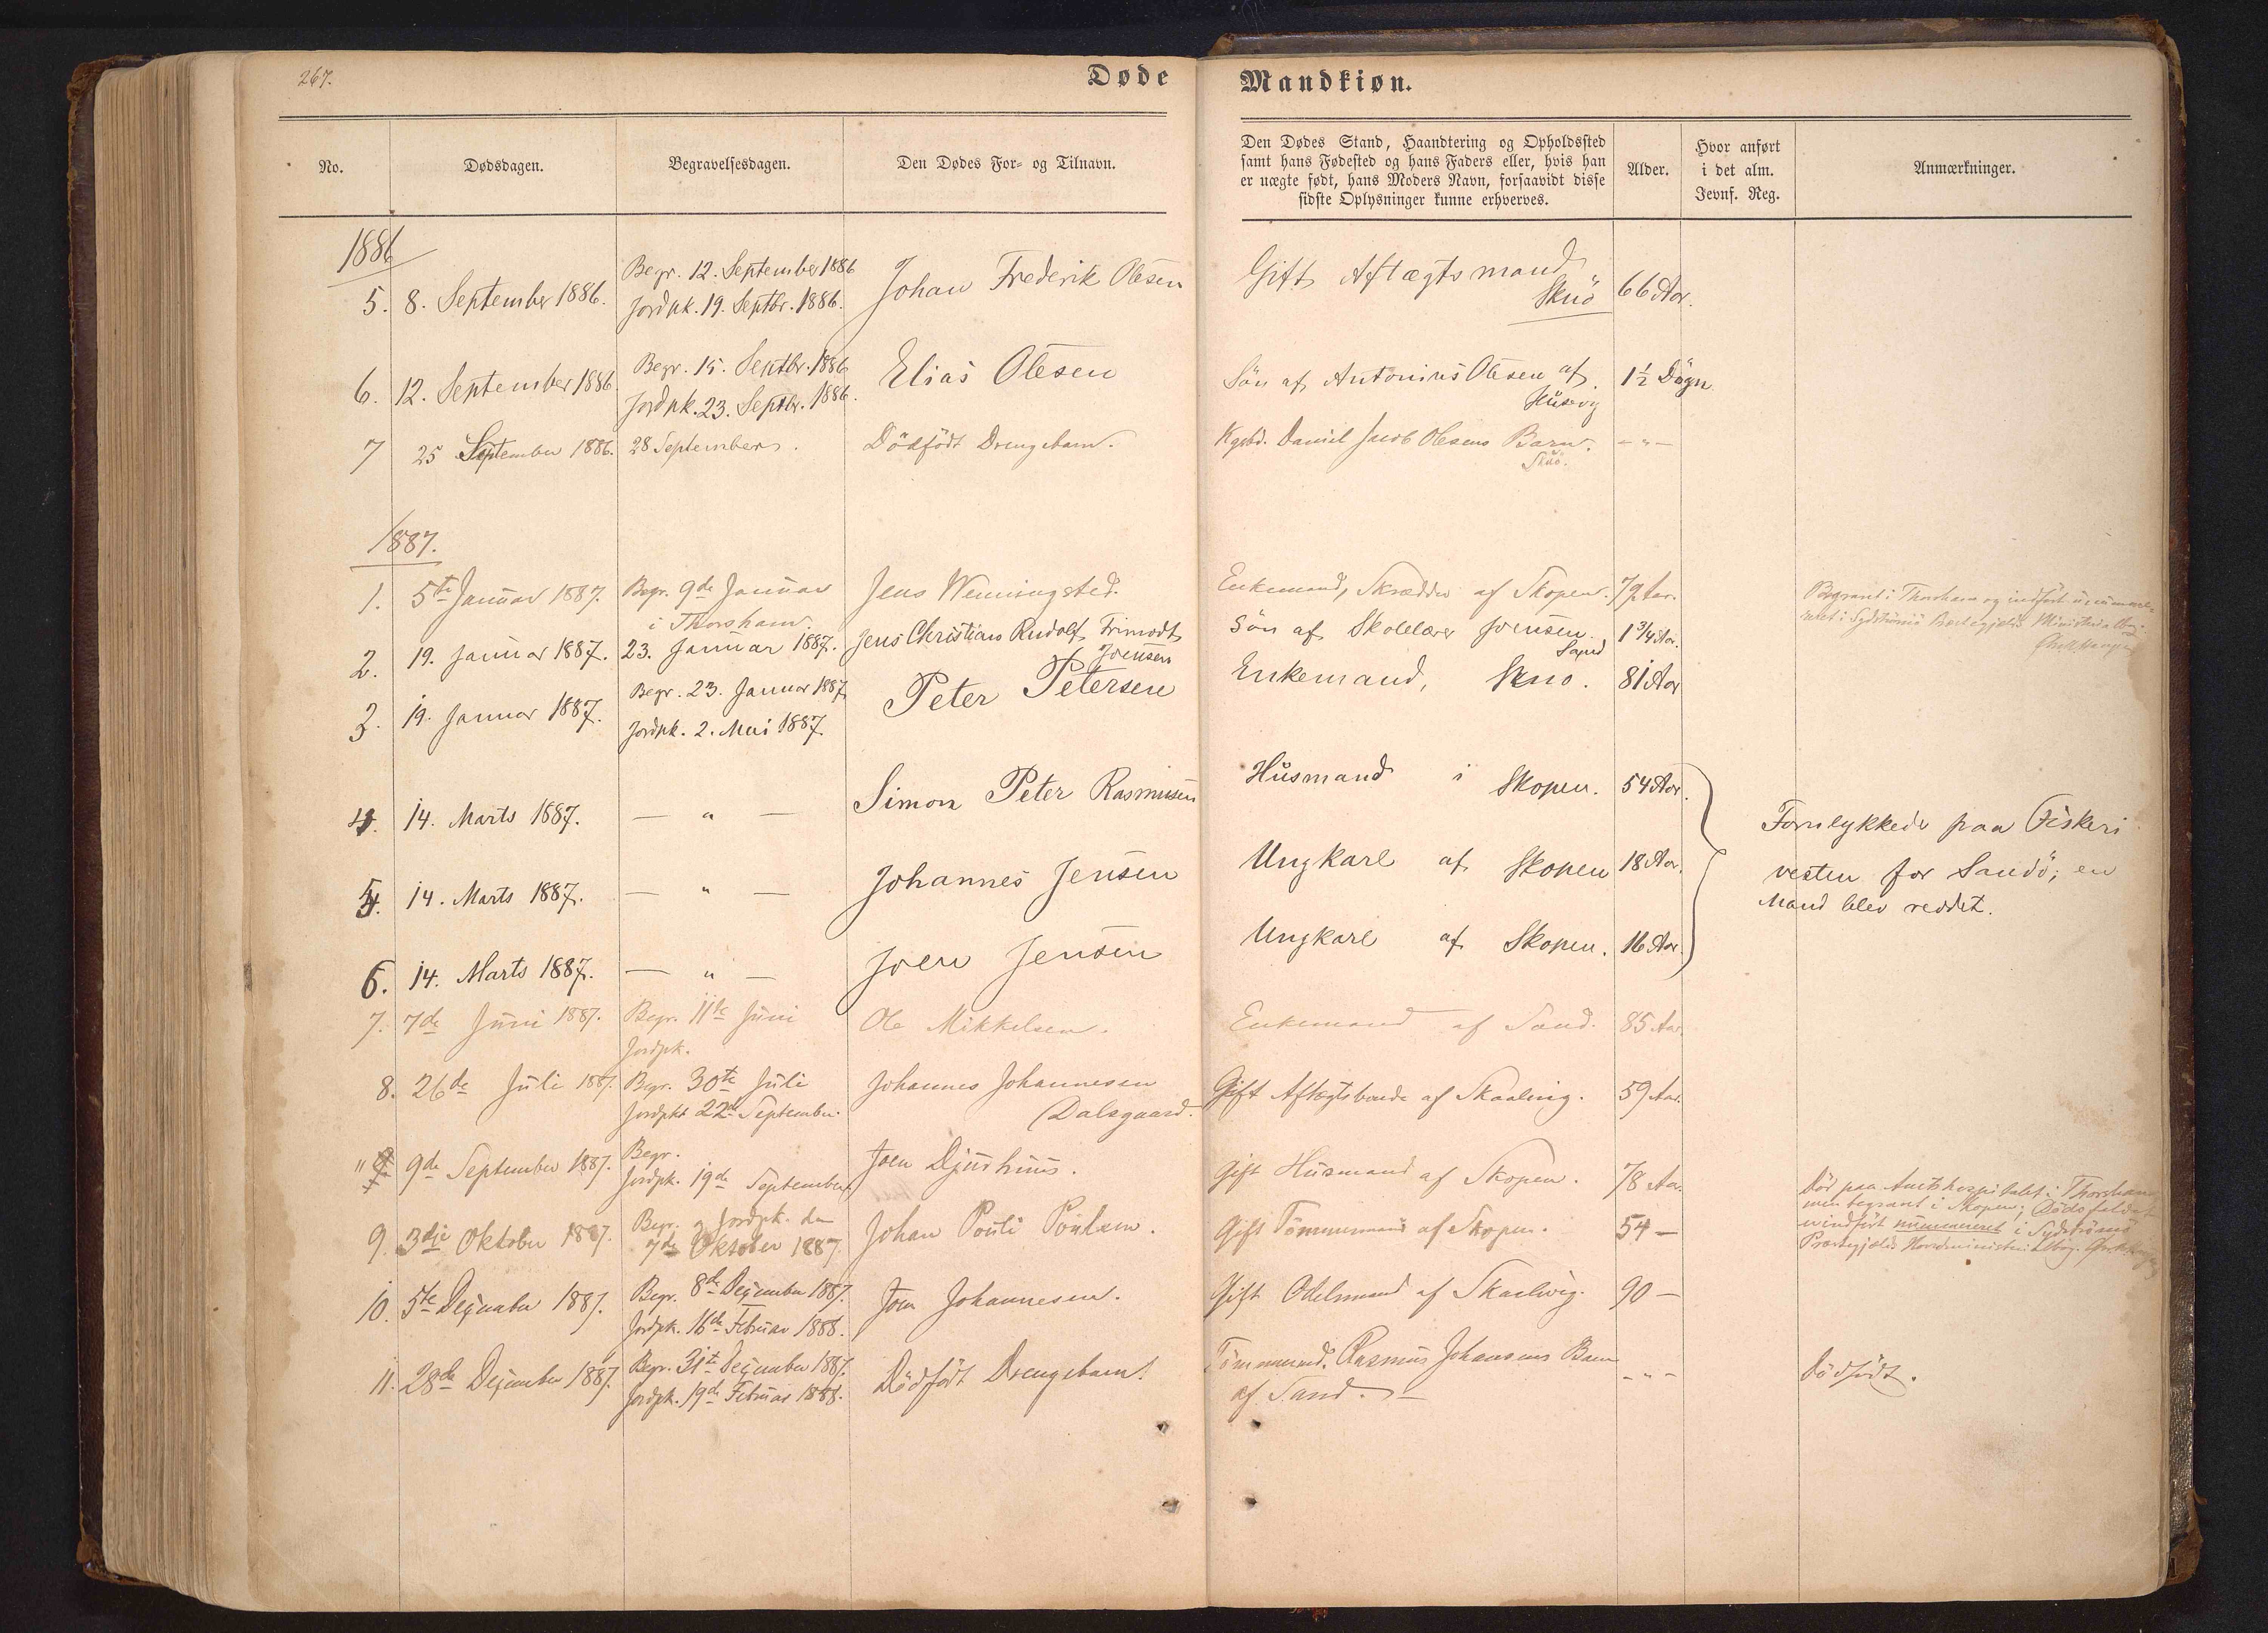 267.
Døde Mandkiøn.
No.
Dødsdagen.
Begravelsesdagen.
Den Dødes For- og Tilnavn.
Den Dødes Stand, Haandtering og Opholdssted
samt hans Fødested og hans Faders eller, hvis han
er uægte født, hans Moders Navn, forsaavidt disse
sidste Oplysninger kunne erhverves.
Alder.
Hvor anført
i det alm.
Jevnf. Reg.
Anmærkninger.
1886
5. 8. September 1886.
Begr. 12. September 1886
Jordpk. 19. Septbr. 1886.
Johan Frederik Olesen
Gift Aftægtsmand
Skuö
66 Aar.
6. 12. September 1886.
Begr. 15. Septbr. 1886
Jordpk. 23. Septbr. 1886.
Elias Olesen
Sön af Antonius Olesen af
Husevig
1½ Dögn
7 25 September 1886.
28 September.
Dödfödt Drengebarn.
Kgsbd. Daniel Jacob Olesens Barn.
Skuö.
- " -
1887.
1. 5te Januar 1887.
Begr. 9de Januar
i Thorshavn.
Jens Wenningsted.
Enkemand, Skrædder af Skopen.
79 Aar.
Begravet i Thorshavn og indført
i Sydströmö Præstegjelds
2. 19. Januar 1887.
23. Januar 1887.
Jens Christian Rudolf Frimodt
Joensen
Sön af Skolelærer Joensen.
Sand
1¾ Aar.
3. 19. Januar 1887.
Begr. 23. Januar 1887
Jordpk. 2. Mai 1887.
Peter Petersen
Enkemand, Skuö.
81 Aar
4. 14. Marts 1887.
— " —
Simon Peter Rasmusen
Husmand i Skopen.
54 Aar.
5. 14. Marts 1887.
— " —
Johannes Jensen
Ungkarl af Skopen
18 Aar.
6. 14. Marts 1887.
— " —
Joen Jensen
Ungkarl af Skopen.
16 Aar.
Forulykkede paa Fiskeri
vesten for Sandö; en
Mand blev reddet.
7. 7de Juni 1887.
Begr. 11te Juni
Jordpk.
Ole Mikkelsen.
Enkemand af Sand.
85 Aar.
8. 26de Juli 1887.
Begr. 30te Juli
Jordpkt 22de September.
Johannes Johannesen
Dalsgaard.
Gift Aftægtsbonde af Skaaling.
59 Aar.
" 9de September 1887.
Begr.
Jordpk. 19de September
Joen Djurhuus.
Gift Husmand af Skopen.
78 Aar.
Död paa Amtshospitalet i Thorshavn
men begravet i Skopen; Dödsfaldet
er indført nummereret i Sydströmö
Præstegjelds Hovedministerialbog.
9. 3die Oktober 1887.
Begr. og Jordpk. den
7de Oktober 1887
Johan Pouli Poulsen.
Gift Tömmermand af Skopen.
54 —
10. 5te Dezember 1887.
Begr. 8de Dezember 1887.
Jordpk. 16de Februar 1888.
Joen Johannesen.
Gift Odelsmand af Skaalvig.
90 —
11. 28de Dezember 1887.
Begr. 31te Dezember 1887.
Jordpk. 19de Februar 1888.
Dödfödt Drengebarn.
Tömmermd. Rasmus Johansens Barn
af Sand. —
- " -
Dödfödt.